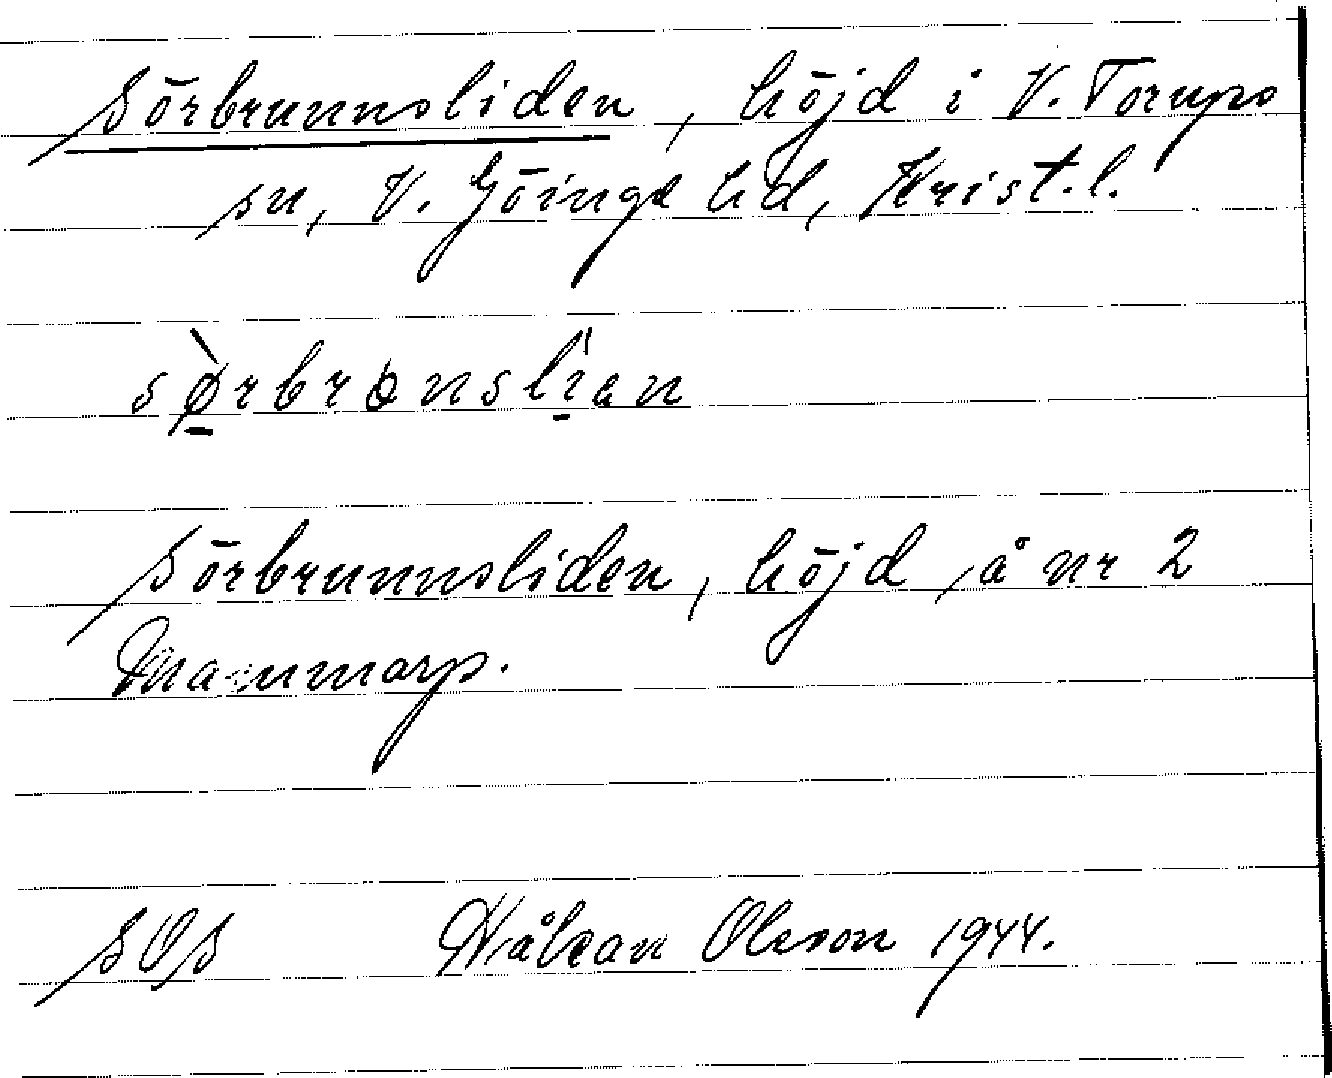 Sörbrunnsliden, höjd i V. Torups
sn, V. Göinge hd, Krist. l.
sø̀rbrɔnslìən
Sörbrunnsliden, höjd, å nr 2
Mannarp.
SOS Håkan Olsson 1944.